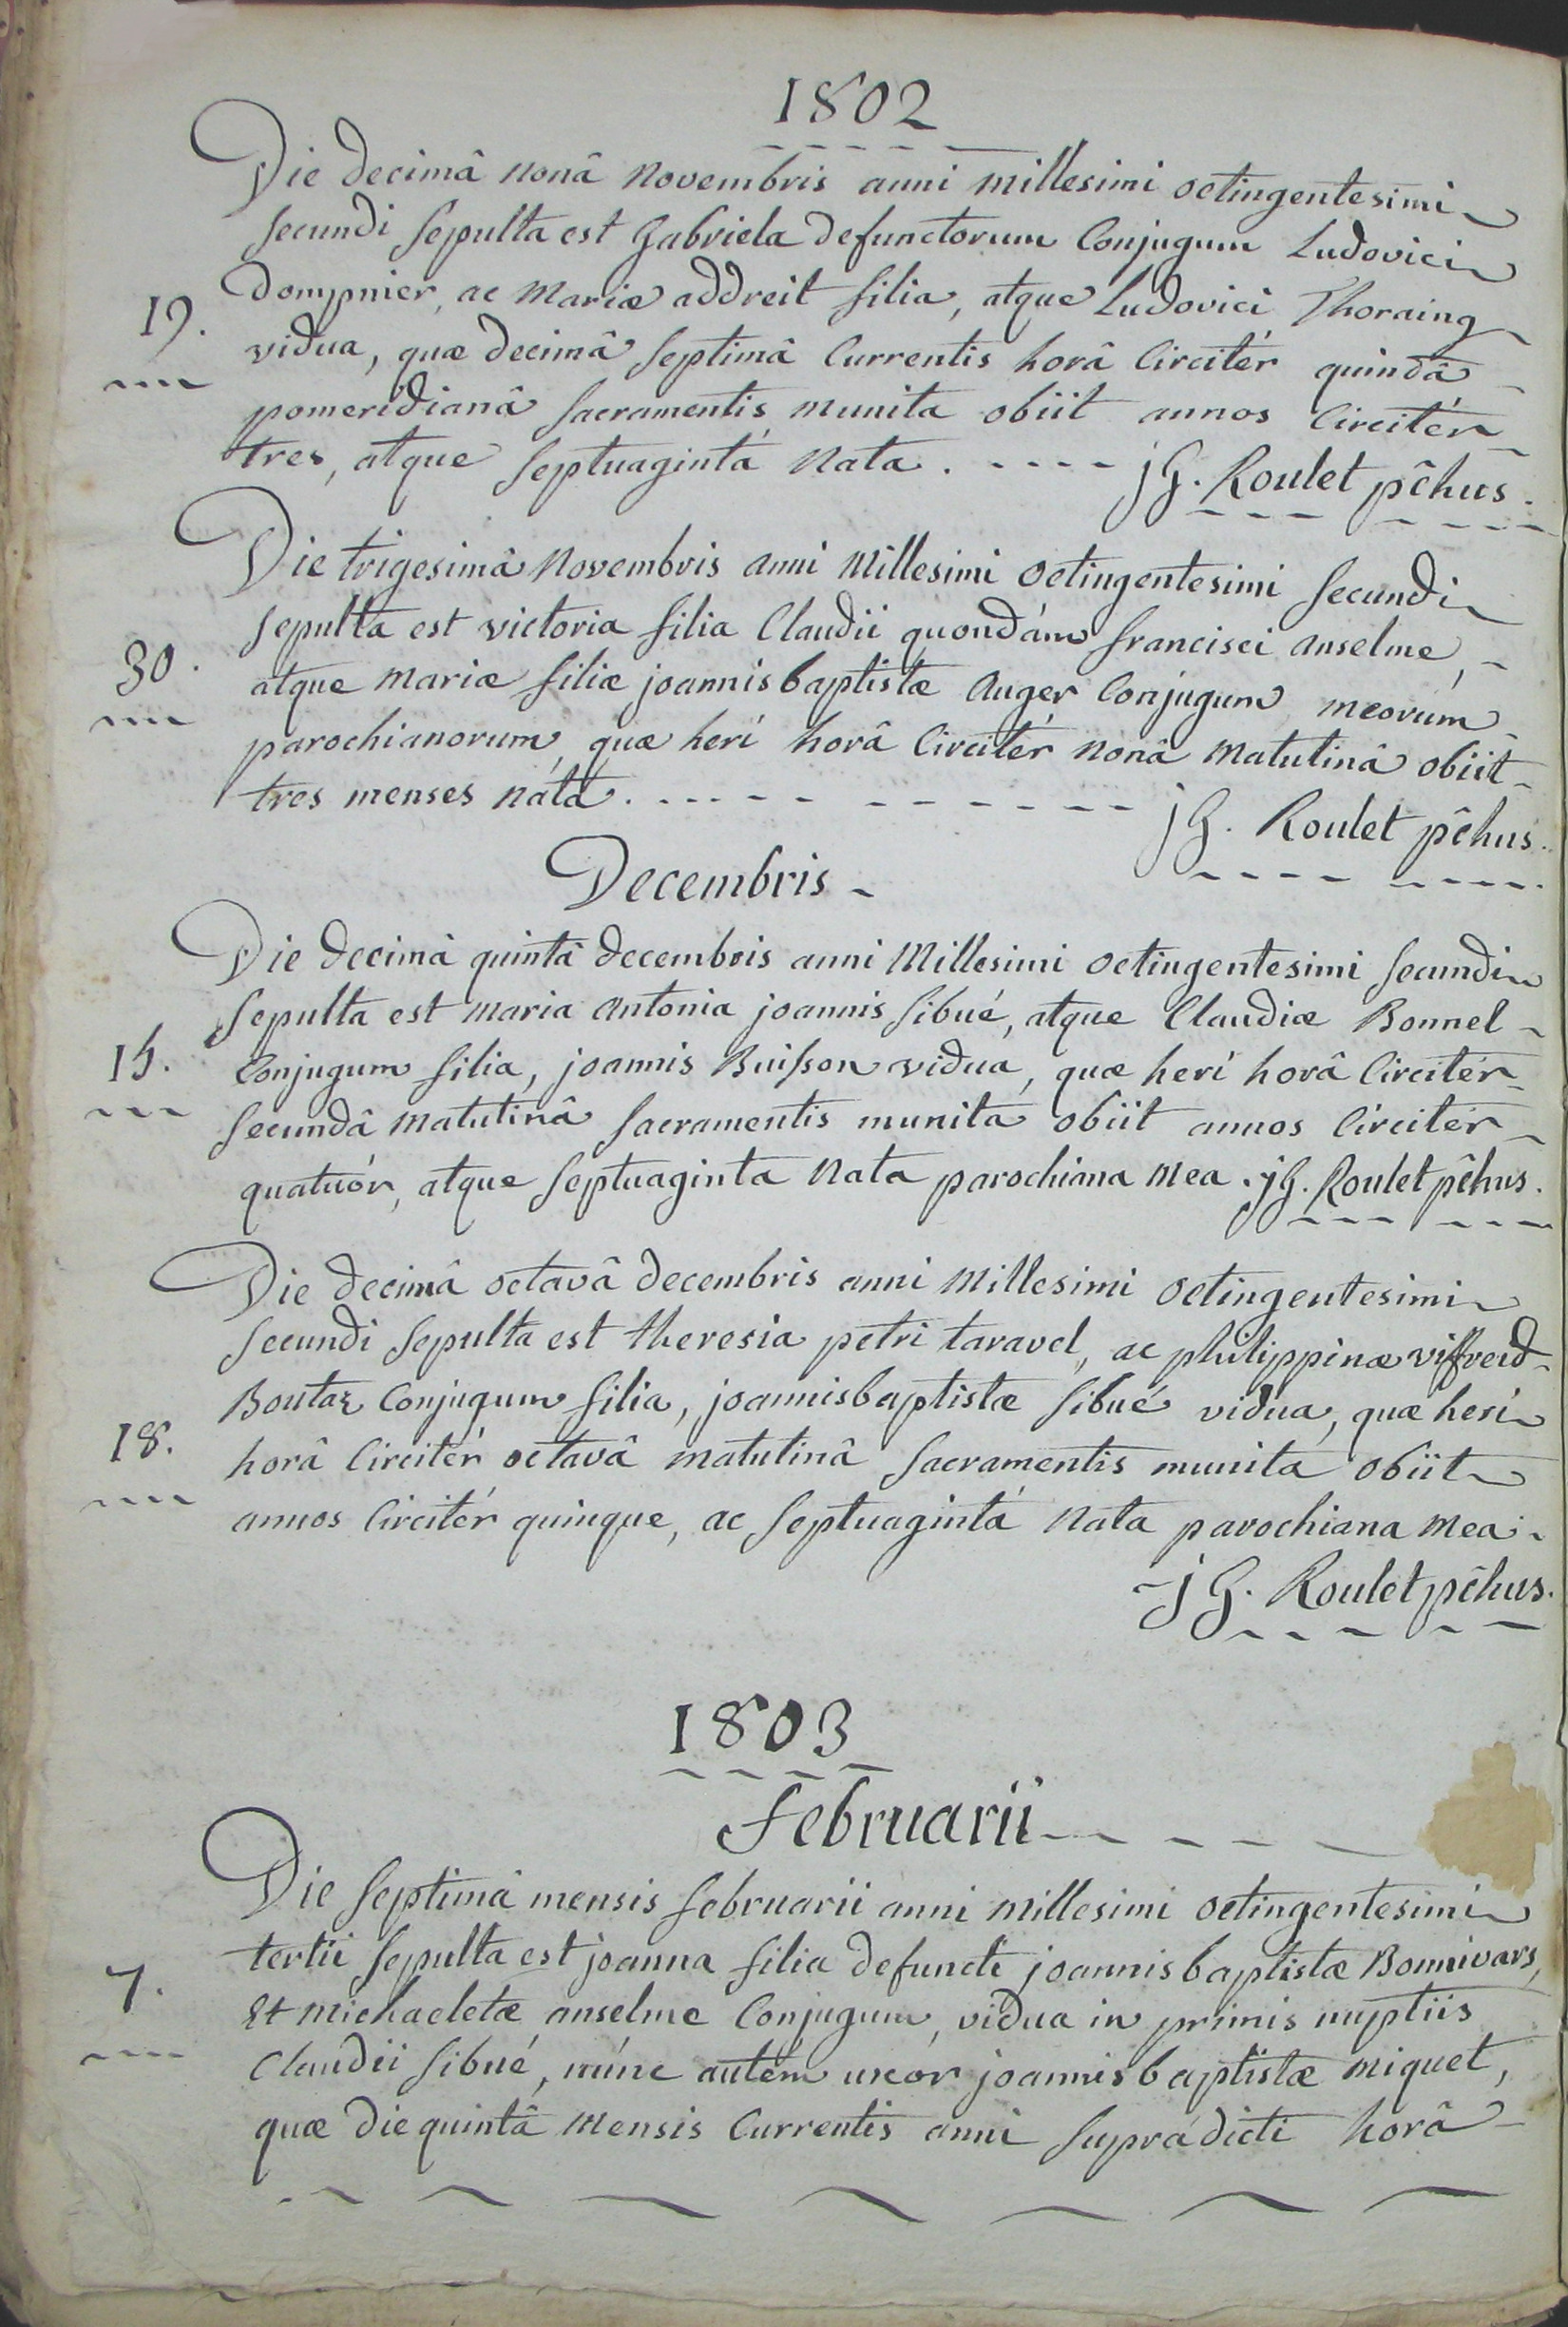 1802
Die decimâ nonâ novembris anni millesimi octingentesimi
secundi sepulta est Gabriela defunctorum Conjugum Ludovici
Dompnier, ac Mariæ addreit filia, atque Ludovici Thoraing
19.
vidua, quæ decimâ septimâ Currentis horâ Circitér quindâ
pomeridianâ sacramentis munita obiit annos Circitér
tres, atque septuagintá nata. jG. Roulet pchûs.
Die trigesimâ novembris anni Millesimi octingentesimi secundi
sepulta est victoria filia Claudii quondám francisci anselme,
30.
atque mariæ filiæ joannisbaptistæ Auger Conjugum meorúm
parochianorum, quæ herí horâ Circitér nonâ matutinâ obiit
tres menses náta. jG. Roulet pchûs.
Decembris
Die decimâ quintâ decembris anni Millesimi octingentesimi secundi
sepulta est maria antonia joannis sibué, atque Claudiæ Bonnel
15.
Conjugum filia, joannis Buisson vidua, quæ herí horâ Circitér
secundâ matutinâ sacramentis munita obiit annos Circitér
quatuór, atque septuaginta nata parochiana mea. jG. Roulet pchûs.
Die decimâ octavâ decembris anni Millesimi octingentesimi
secundi sepulta est theresia petri taravel, ac philippinæ
Boutaz Conjugum filia, joannisbaptistæ sibué vidua, quæ herí
18.
horâ Circitér octavâ matutinâ sacramentis munita obiit
annos Circitér quinque, ac septuagintá nata parochiana mea.
jG. Roulet pchûs.
1803
februarii
Die septimâ mensis februarii anni millesimi octingentesimi
tertii sepulta est joanna filia defuncti joannisbaptistæ Bonnivars,
7.
Et michaeletæ anselme Conjugum, vidua in primis nuptiis
Claudii sibué, núnc autém uxór joannisbaptistæ miquet,
quæ die quintâ mensis Currentis anni suprádicti horâ